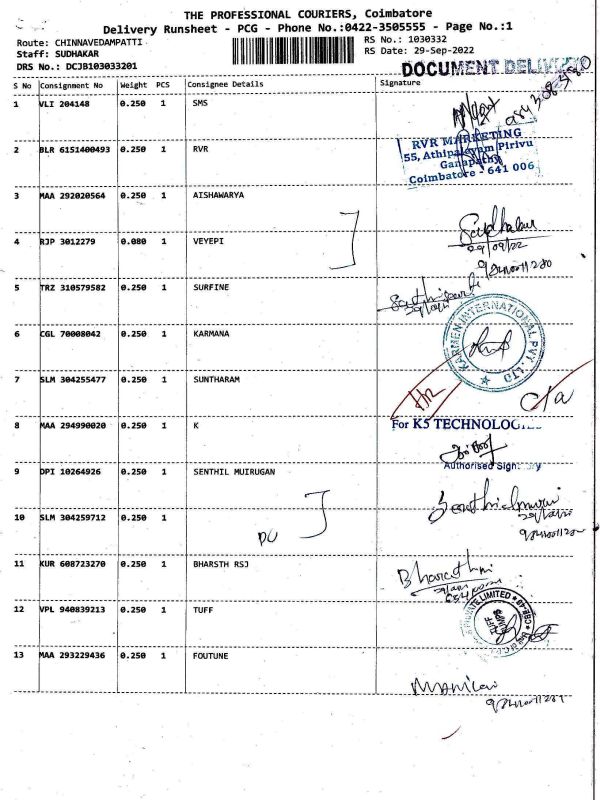 THE PROFESSIONAL COURIERS, Coimbatore
Delivery Runsheet - PCG - Phone No.:0422-3505555 - Page No.:1
Route: CHINNAVEDAMPATTI
RS No.: 1030332
Staff: SUDHAKAR
RS Date: 29-Sep-2022
DRS No.: DCJB103033201
DOCUMENT DELIVERED
S No Consignment No Weight PCS Consignee Details Signature
1 VLI 204148 0.250 1 SMS
2 BLR 6151400493 0.250 1 RVR
RVR MARKETING
55, Athipalayam Pirivu
Ganapathy
Coimbatore - 641 006
3 MAA 292020564 0.250 1 AISHAWARYA
4 RJP 3012279 0.080 1 VEYEPI
Sudhakar
29/09/22
5 TRZ 310579582 0.250 1 SURFINE
6 CGL 70008042 0.250 1 KARMANA
KARMEN INTERNATIONAL PVT. LTD
7 SLM 304255477 0.250 1 SUNTHARAM
8 MAA 294990020 0.250 1 K
For K5 TECHNOLOGIES
Authorised Signatory
9 DPI 10264926 0.250 1 SENTHIL MUIRUGAN
10 SLM 304259712 0.250 1
11 KUR 608723270 0.250 1 BHARSTH RSJ
12 VPL 940839213 0.250 1 TUFF
13 MAA 293229436 0.250 1 FOUTUNE